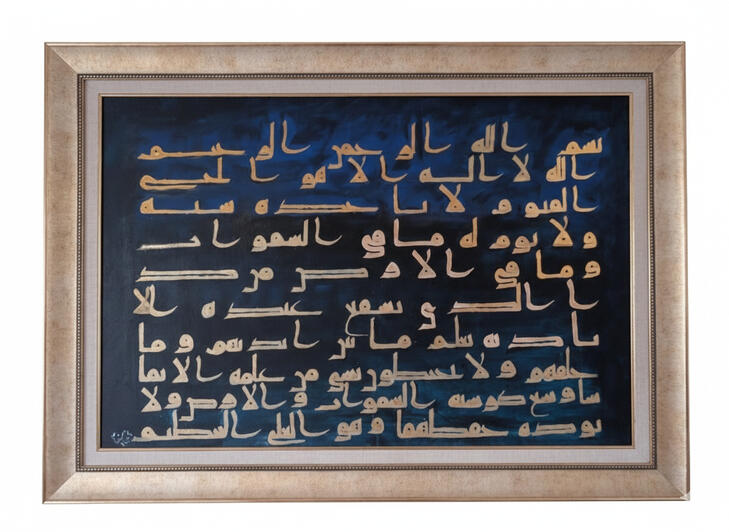 بسم الله الرحمن الرحيم
الله لا اله الا هو الحي
القيوم لا تاخذه سنة
ولا نوم له ما في السموات
وما في الارض من ذ
ا الذي يشفع عنده الا
باذنه يعلم ما بين ايديهم وما
خلفهم ولا يحيطون بشي من علمه الا بما
شا وسع كرسيه السموات والارض ولا
يوده حفظهما وهو العلي العظيم